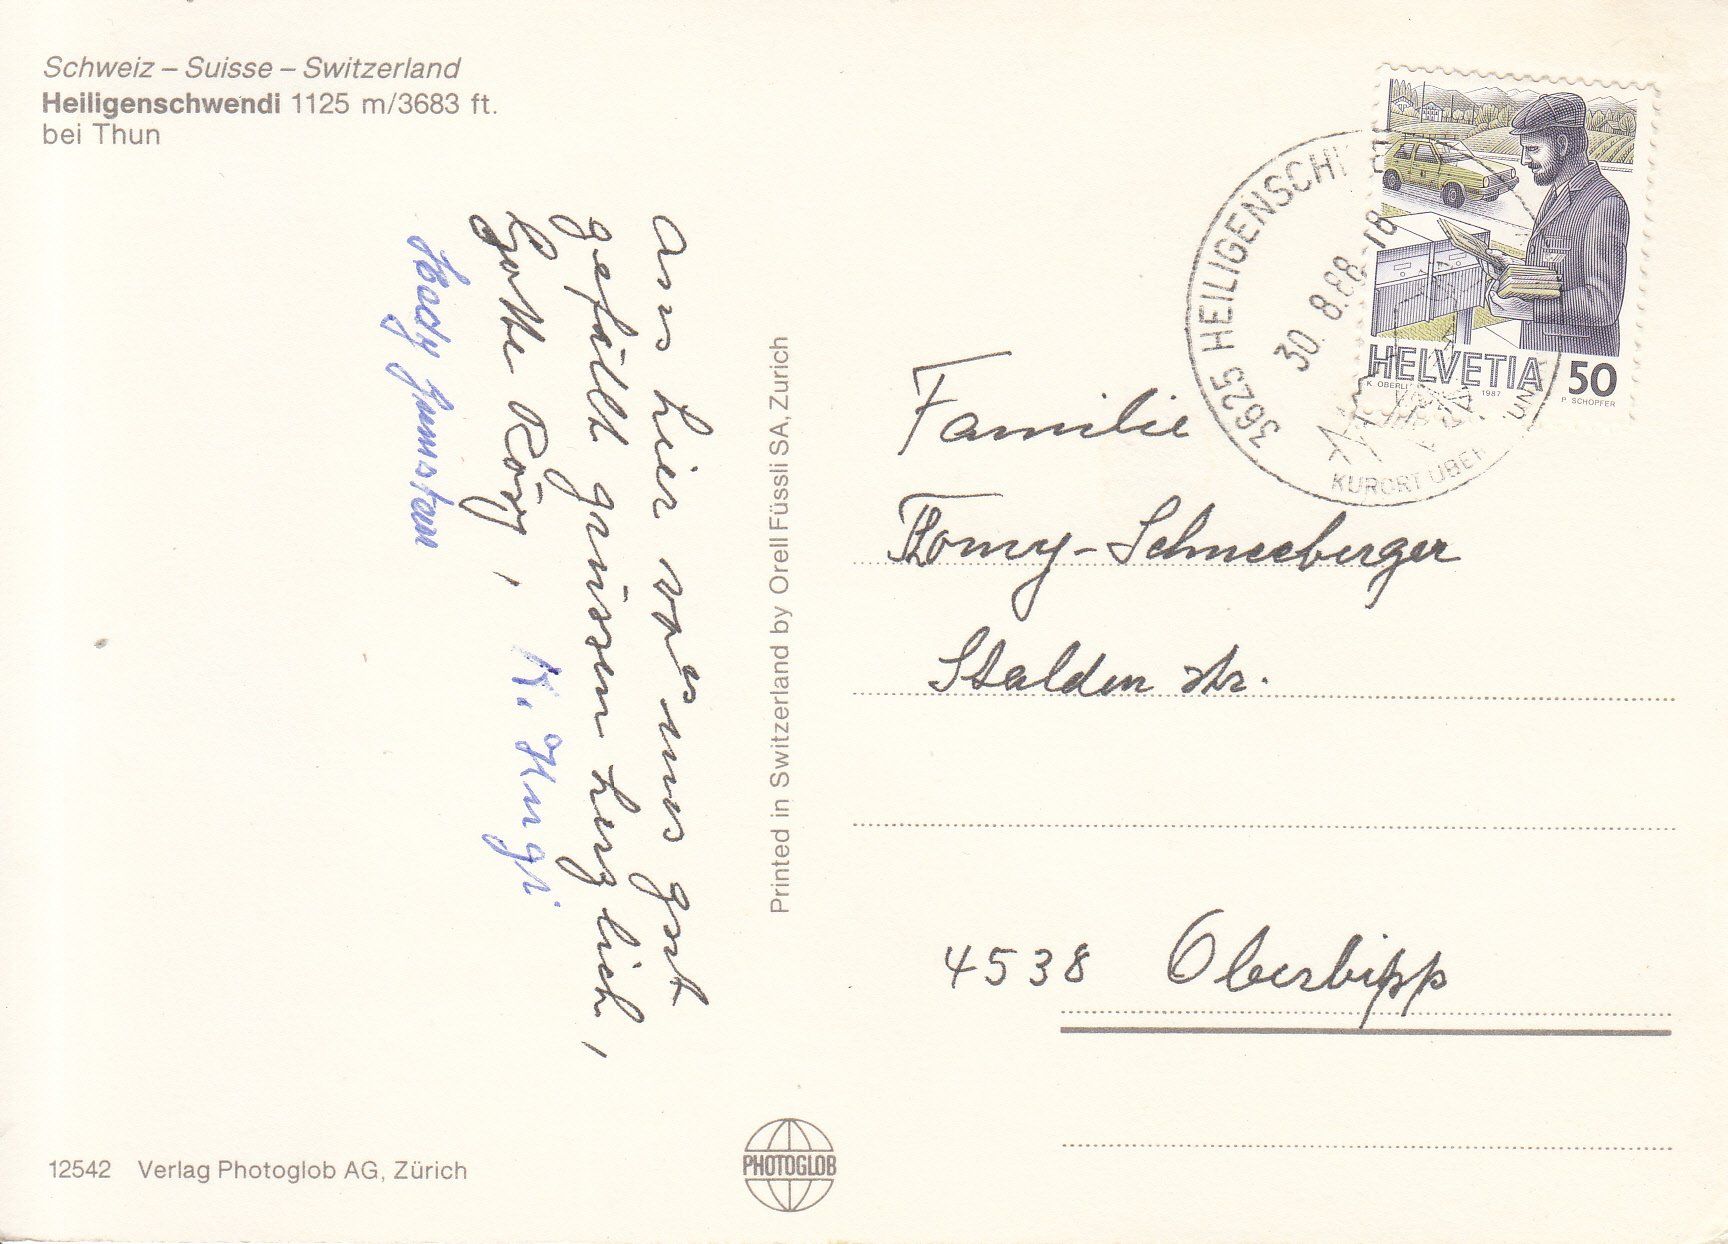 Schweiz – Suisse – Switzerland
Heiligenschwendi 1125 m/3683 ft.
bei Thun
aus hier wo's uns gut
gefällt grüssen herzlich,
Gotte Rösy,
K. Hugi
Printed in Switzerland by Orell Füssli SA, Zurich
3625 HEILIGENSCHW
30. 8.88-18
KURORT ÜBER
HELVETIA 50
1987
P SCHOPFER
Familie
Thomy-Schneeberger
Stalden str.
4538 Oberbipp
12542 Verlag Photoglob AG, Zürich
PHOTOGLOB